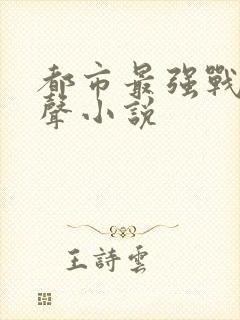 都市最强戰
聲小説
王詩雲